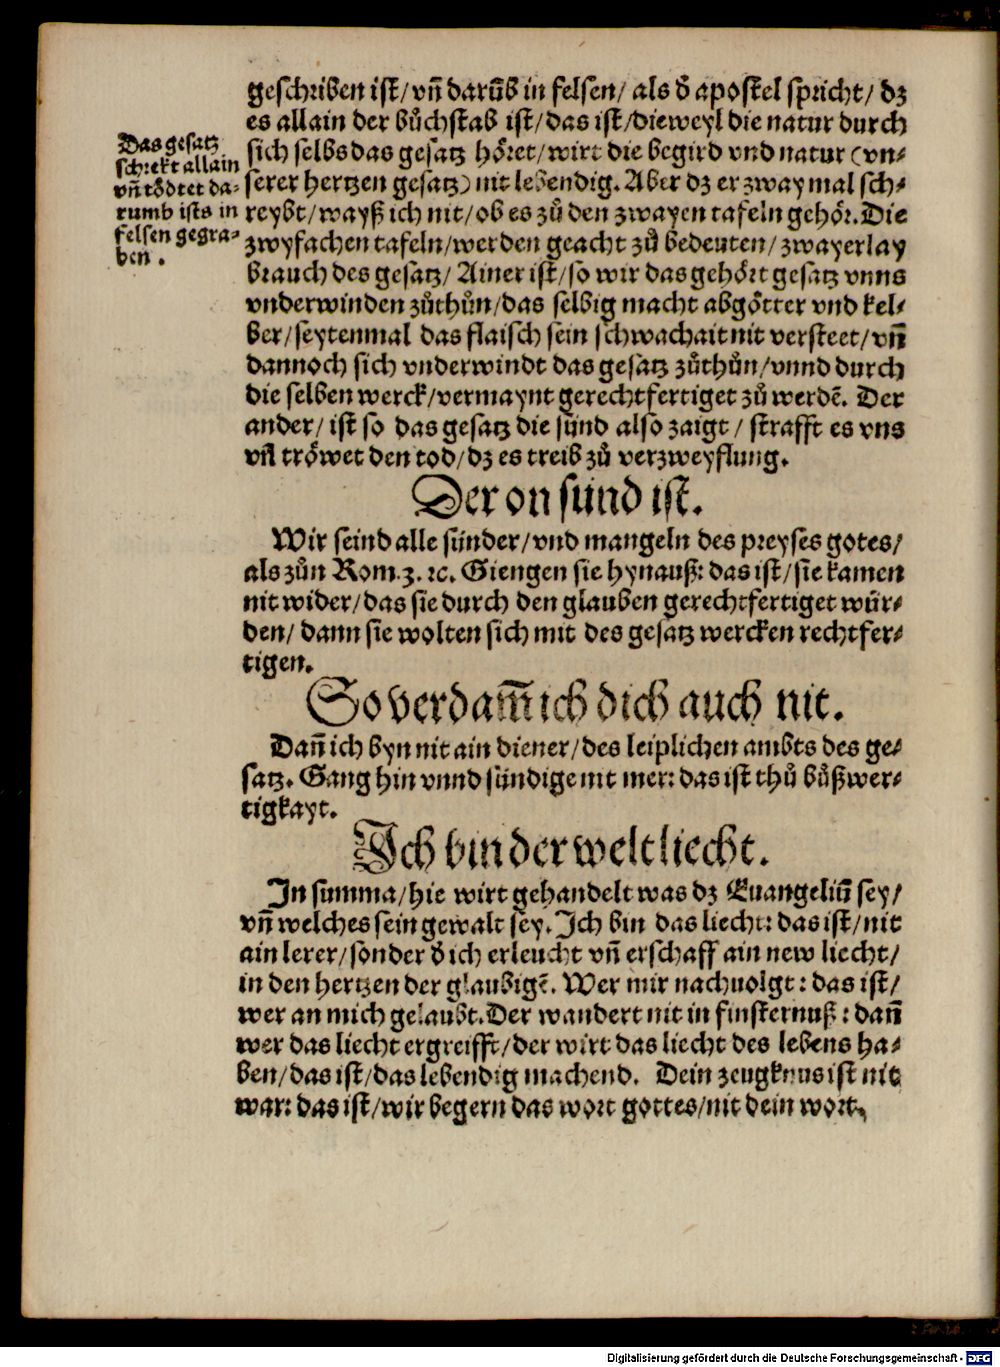 geschriben ist/ vn̄ darūb in felsen/ als d̕ apostel spricht/ dz
es allain der bůchstab ist/ das ist/ dieweyl die natur durch
sich selbs das gesatz höret/ wirt die begird vnd natur (vn⸗
serer hertzen gesatz) nit lebendig. Aber dz er zway mal sch⸗
reybt/ wayß ich nit/ ob es zů den zwayen tafeln gehör. Die
zwyfachen tafeln/ werden geacht zů bedeuten/ zwayerlay
brauch des gesatz/ Ainer ist/ so wir das gehört gesatz vnns
vnderwinden zůthůn/ das selbig macht abgötter vnd kel⸗
ber/ seytenmal das flaisch sein schwachait nit versteet/ vn̄
dannoch sich vnderwindt das gesatz zůthůn/ vnnd durch
die selben werck/ vermaynt gerechtfertiget zů werdē. Der
ander/ ist so das gesatz die sünd also zaigt/ strafft es vns
vn̄ tröwet den tod/ dz es treib zů verzweyflung.
Das gesatz
schrekt allain
vn̄ tödtet da⸗
rumb ists in
felsen gegra⸗
ben.
Der on sünd ist.
Wir seind alle sünder/ vnd mangeln des preyses gotes/
als zůn Rom. 3. ꝛc. Giengen sie hynauß: das ist/ sie kamen
nit wider/ das sie durch den glauben gerechtfertiget wür⸗
den/ dann sie wolten sich mit des gesatz wercken rechtfer⸗
tigen.
So verdam̄ ich dich auch nit.
Dan̄ ich byn nit ain diener/ des leiplichen ambts des ge⸗
satz. Gang hin vnnd sündige nit mer: das ist thů bůßwer⸗
tigkayt.
Ich bin der welt liecht.
In summa/ hie wirt gehandelt was dz Euangeliū sey/
vn̄ welches sein gewalt sey. Ich bin das liecht: das ist/ nit
ain lerer/ sonder d̕ ich erleucht vn̄ erschaff ain new liecht/
in den hertzen der glaubigē. Wer mir nachuolgt: das ist/
wer an mich gelaubt. Der wandert nit in finsternuß: dan̄
wer das liecht ergreifft/ der wirt das liecht des lebens ha⸗
ben/ das ist/ das lebendig machend. Dein zeugknus ist nit
war: das ist/ wir begern das wort gottes/ nit dein wort,
Digitalisierung gefördert durch die Deutsche Forschungsgemeinschaft - DFG